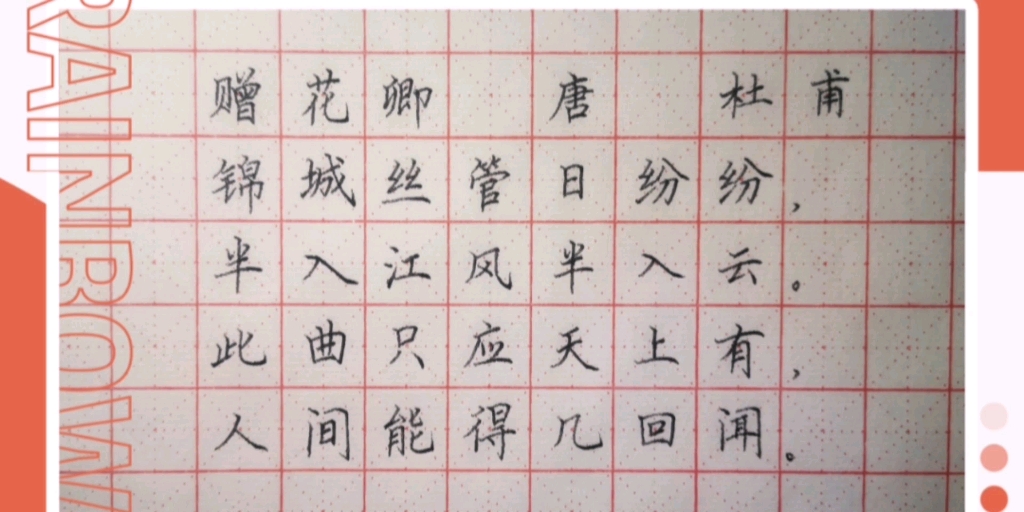 RAINBOW
赠花卿 唐 杜甫
锦城丝管日纷纷，
半入江风半入云。
此曲只应天上有，
人间能得几回闻。